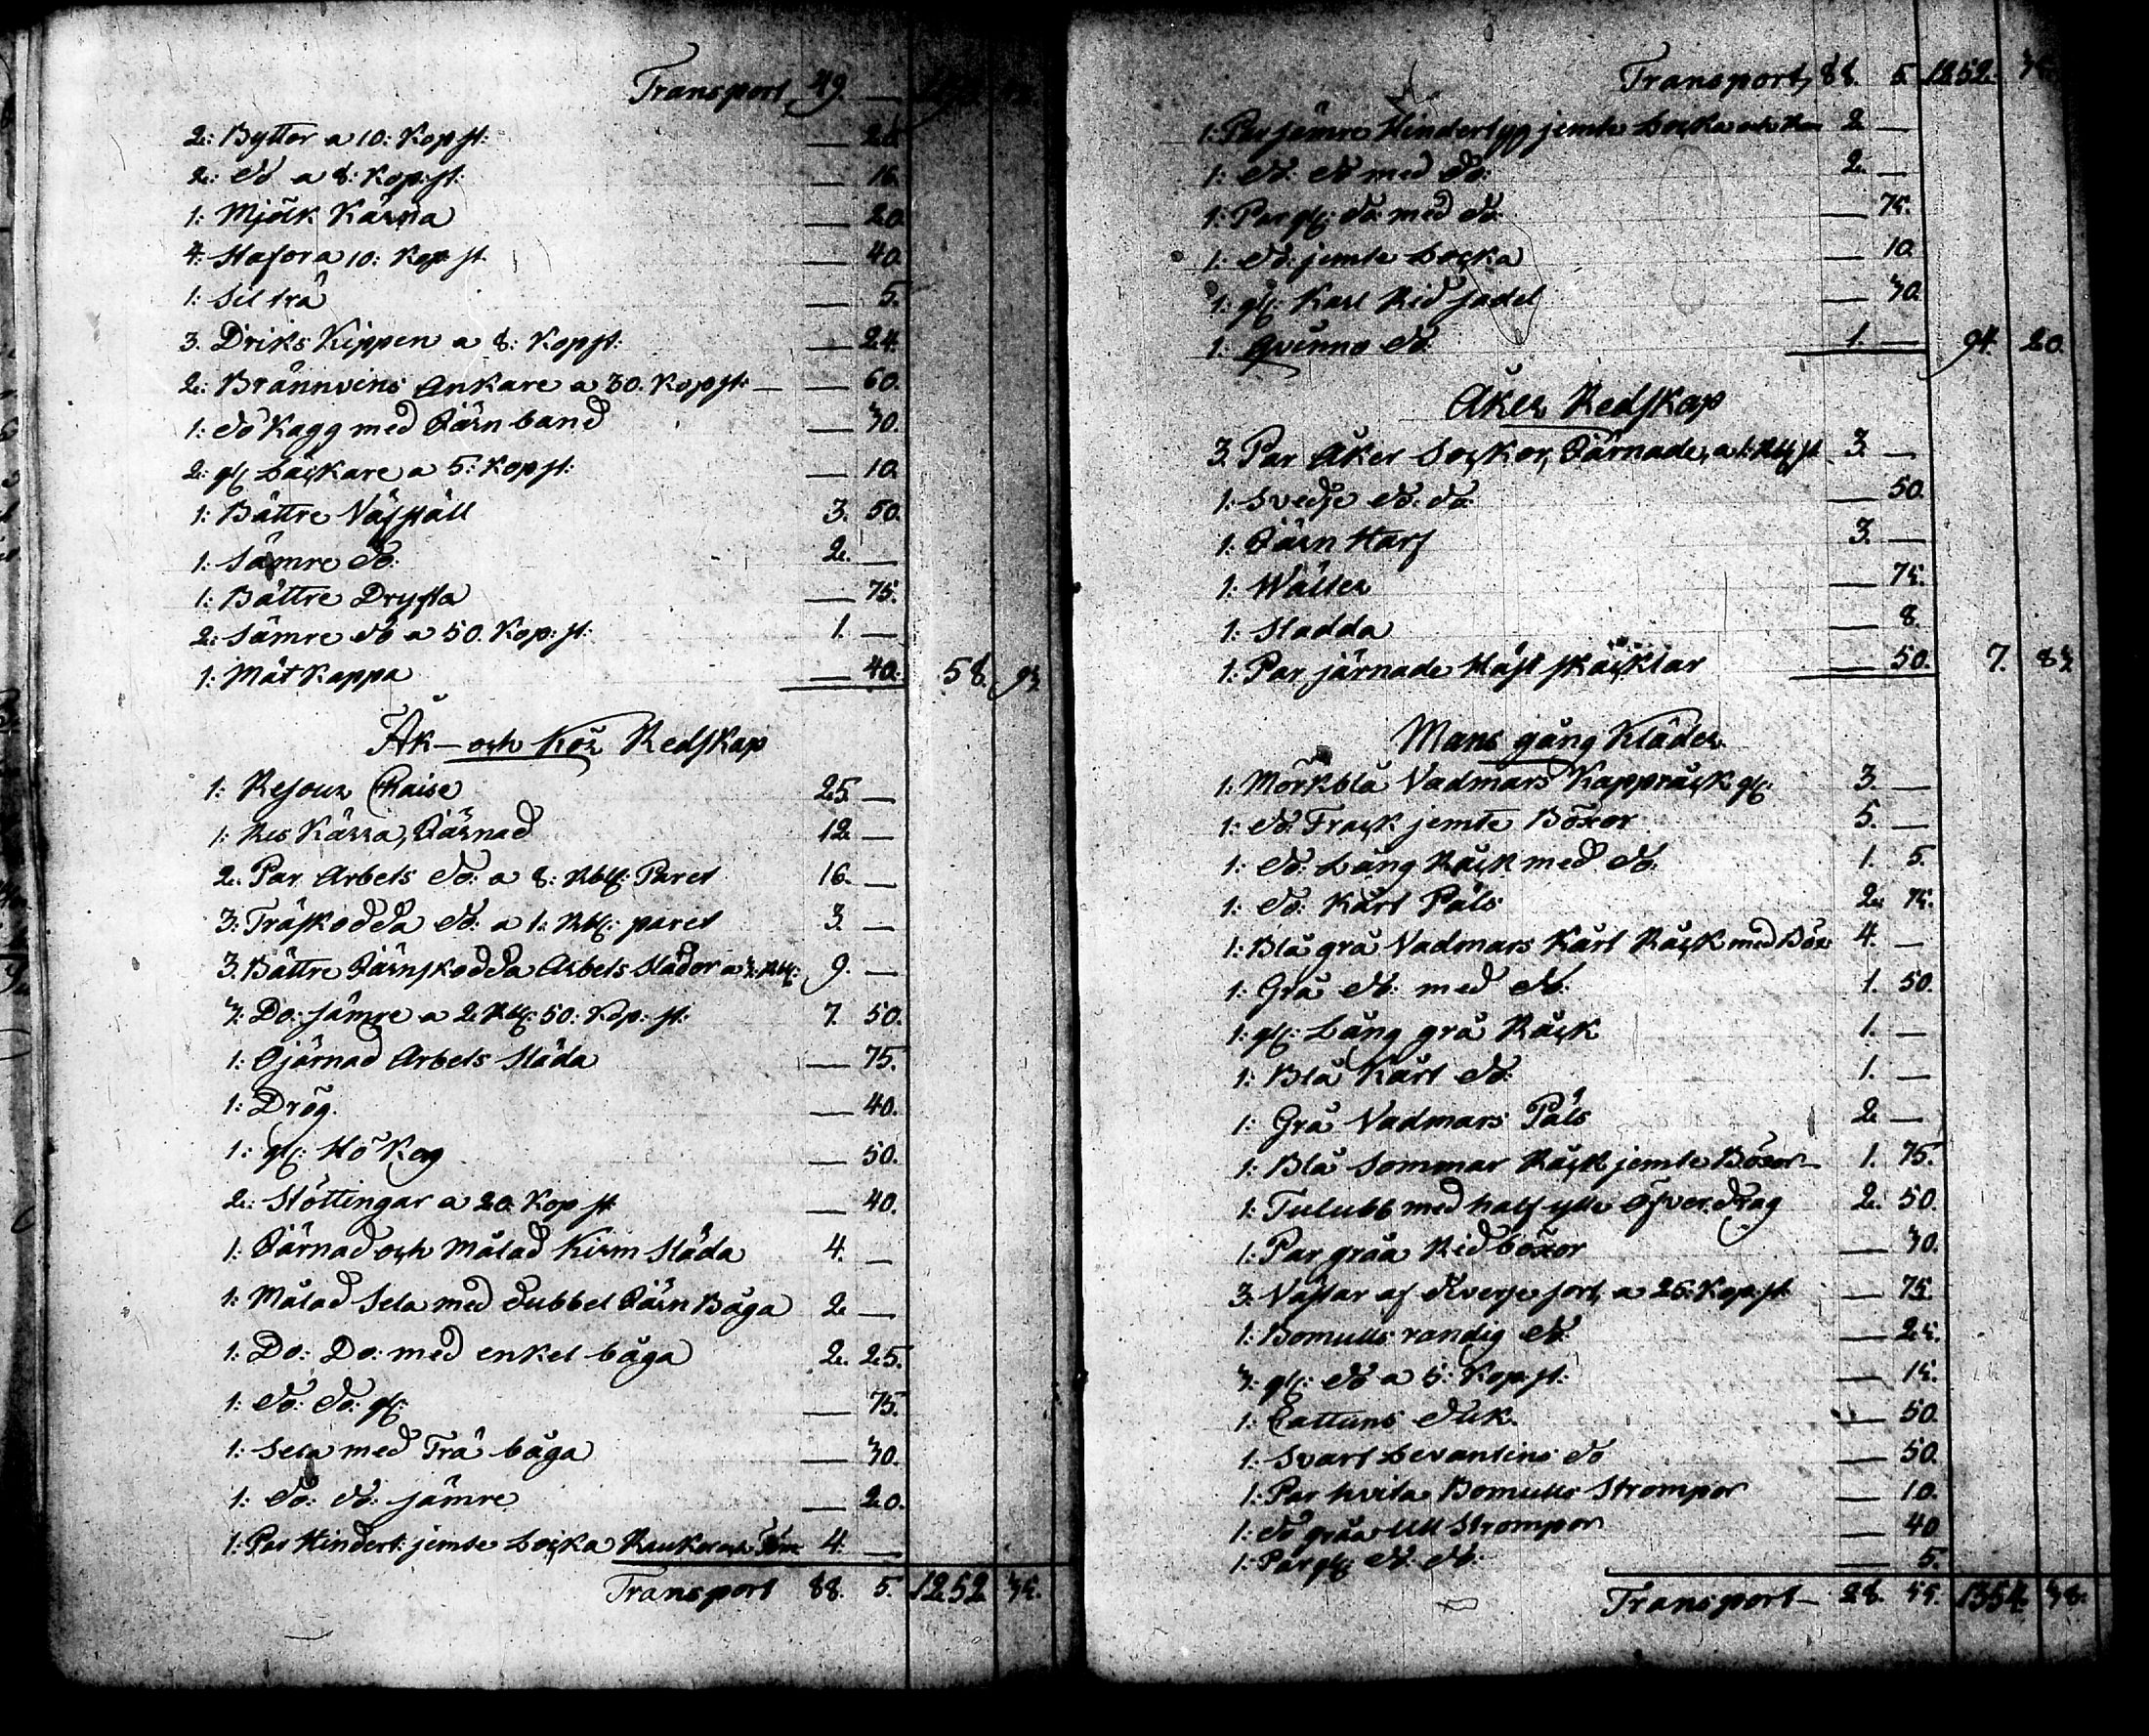 Transport 49. —
2: Byttor a 10: Kop st: — 20.
2: do a 8: Kop: st: — 16.
1: Mjölk Kärna — 20.
4: Stafor a 10: Kop: st — 40.
1: Sil trä — 5.
3. Driks Kippen a 8: Kop st: — 24.
2: Brännvins Ankare a 30. Kop st: — 60.
1: do Kagg med Järn band — 30.
2: gl: Läckare a 5: Kop st: — 10.
1: Bättre Väfställ 3. 50.
1: Sämre do: 2. —
1: Bättre Dryfta — 75.
2: Sämre do a 50. Kop: st: 1. —
1: Mät Kappa — 40. 58. 95.
Åk — och Kör Redskap
1: Resour Chaise 25. —
1: Res Kärra, Järnad 12 —
2: Par Arbets do: a 8: Rbl: Paret 16. —
3: Träskodda do: a 1: Rbl: paret 3. —
3: Bättre Järnskodda Arbets Slädor a 3: Rbl: 9. —
3: Do: sämre a 2 Rbl: 50: Kop: st: 7. 50.
1: Ojärnad Arbets Släda — 75.
1: Drög. — 40.
1: gl: Hö Korg — 50.
2: Stöttingar a 20. Kop st — 40.
1: Järnad och Målad Kirm Släda 4. —
1: Målad Sela med dubbel Järn Båga 2. —
1: Do: Do: med enkel båga 2. 25.
1: do: do: gl: — 75.
1: Sela med Trä båga — 30.
1: do: do: sämre — 20.
1: Par Hindert: jemte Locka Raukor och Töm 4. —
Transport 88. 5. 1252 35.
Transport, 88. 5. 1252. 35.
1: Par sämre Hindertyg jemte Locka och 2 —
1: do: do med do: 2. —
1: Par gl: do: med do. — 75.
1: do: jemte Locka — 10.
1: gl: Karl Rid sadel — 30.
1: Qvinno do 1. — 94. 20.
Åker Redskap
3. Par Åker Sockor, Järnade, a 1: Rbl st 3. —
1: Svedje do: do: — 50.
1: Järn Harf 3. —
1: Wälter — 75.
1: Sladda — 8.
1: Par järnade Häst skäcklar — 50. 7. 83.
Mans gång Kläder
1: Mörkblå Vadmars Kappråck gl: 3. —
1: do: Frack jemte Böxor 5. —
1: do: Lång Råck med do. 1. 5.
1: do: Kårt Päls 2. 75.
1: Blå grå Vadmars Kårt Råck med Böx 4. —
1: Grå do: med do: 1. 50.
1: gl: Lång grå Råck 1. —
1: Blå Kårt do: 1. —
1: Grå Vadmars Päls 2 —
1: Blå Sommar Råck jemte Böxor 1. 75.
1: Tulubb med half ylle Öfver drag 2. 50.
1: Par gråa Rid böxor — 30.
3: Västar af diverse sort, a 25: Kop: st — 75.
1: Bomulls randig do: — 25.
3: gl: do a 5: Kop: st: — 15.
1: Cattuns duk. — 50.
1: Svart Levantins do — 50.
1: Par hvita Bomulls Strompor — 10.
1: do gråa Ull Strompor — 40
1: Par gl: do: do: — 5.
Transport 28. 55. 1354. 38.